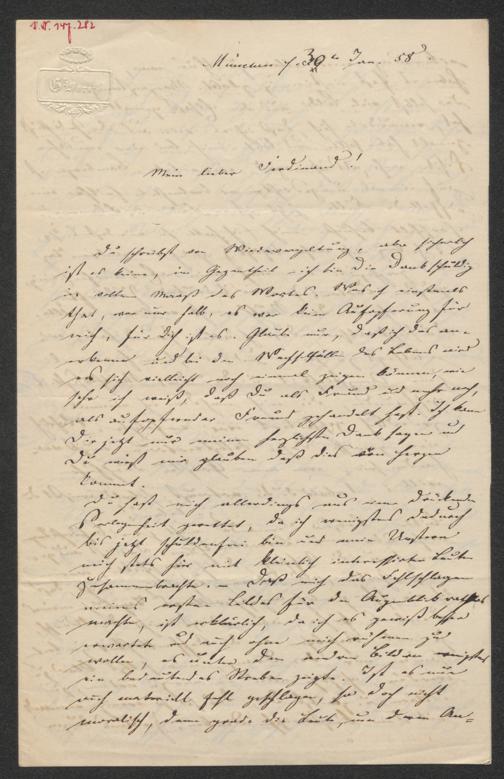 I.N. 147.282
München, 30 Jan. 58
Mein lieber Ferdinand!
Du schreibst von Wiedervergeltung, aber
ist es keine, im Gegentheil ich bin Dir Dank schuldig
im vollen Maaß des Wortes. Was ich einstens
that, war nur halb, es war kein Aufopferung für
mich, für Dich ist es. Glaube nur, daß ich das an-
erkenne und bei den Wechselfällen des Lebens wird
es sich vielleicht noch einmal zeigen können, wie
sehr ich weiß, daß Du als Freund und mehr noch,
als aufopfernder Freund gehandelt hast. Ich kann
Dir jetzt nur meinen herzlichsten Dank sagen und
Du wirst mir glauben daß dies von Herzen
kommt.
Du hast mich allerdings aus einer drückenden
Verlegenheit gerettet, da ich wenigstens dadurch
bis jetzt schuldenfrei bin und mein
mich stets für mit kleinlich interessirten Leuten
zusammenbrachte. – Daß mich das Fehlschlagen
meines ersten Bildes für den Augenblick rathlos
machte, ist erklärlich, da ich es gewiß besser
erwartete und auch ohne mich rühmen zu
wollen, es unter den andern Bildern wenigstens
ein bedeutendes Streben zeigte. Ist es mir
auch materiell fehl geschlagen, so doch nicht
moralisch, denn grade die Leute, um deren An-